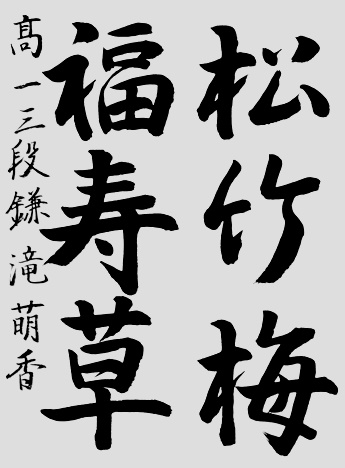 松竹梅
福寿草
高一三段鎌滝萌香